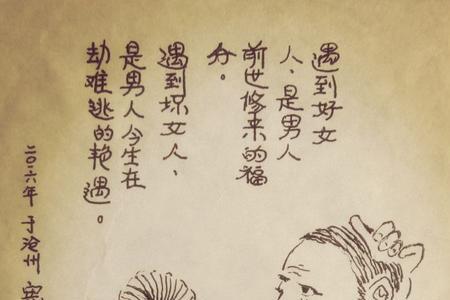 遇到好女
人、是男人
前世修来的福
分。
遇到坏女人、
是男人今生在
劫难逃的艳遇。
二〇一六年 于沧州